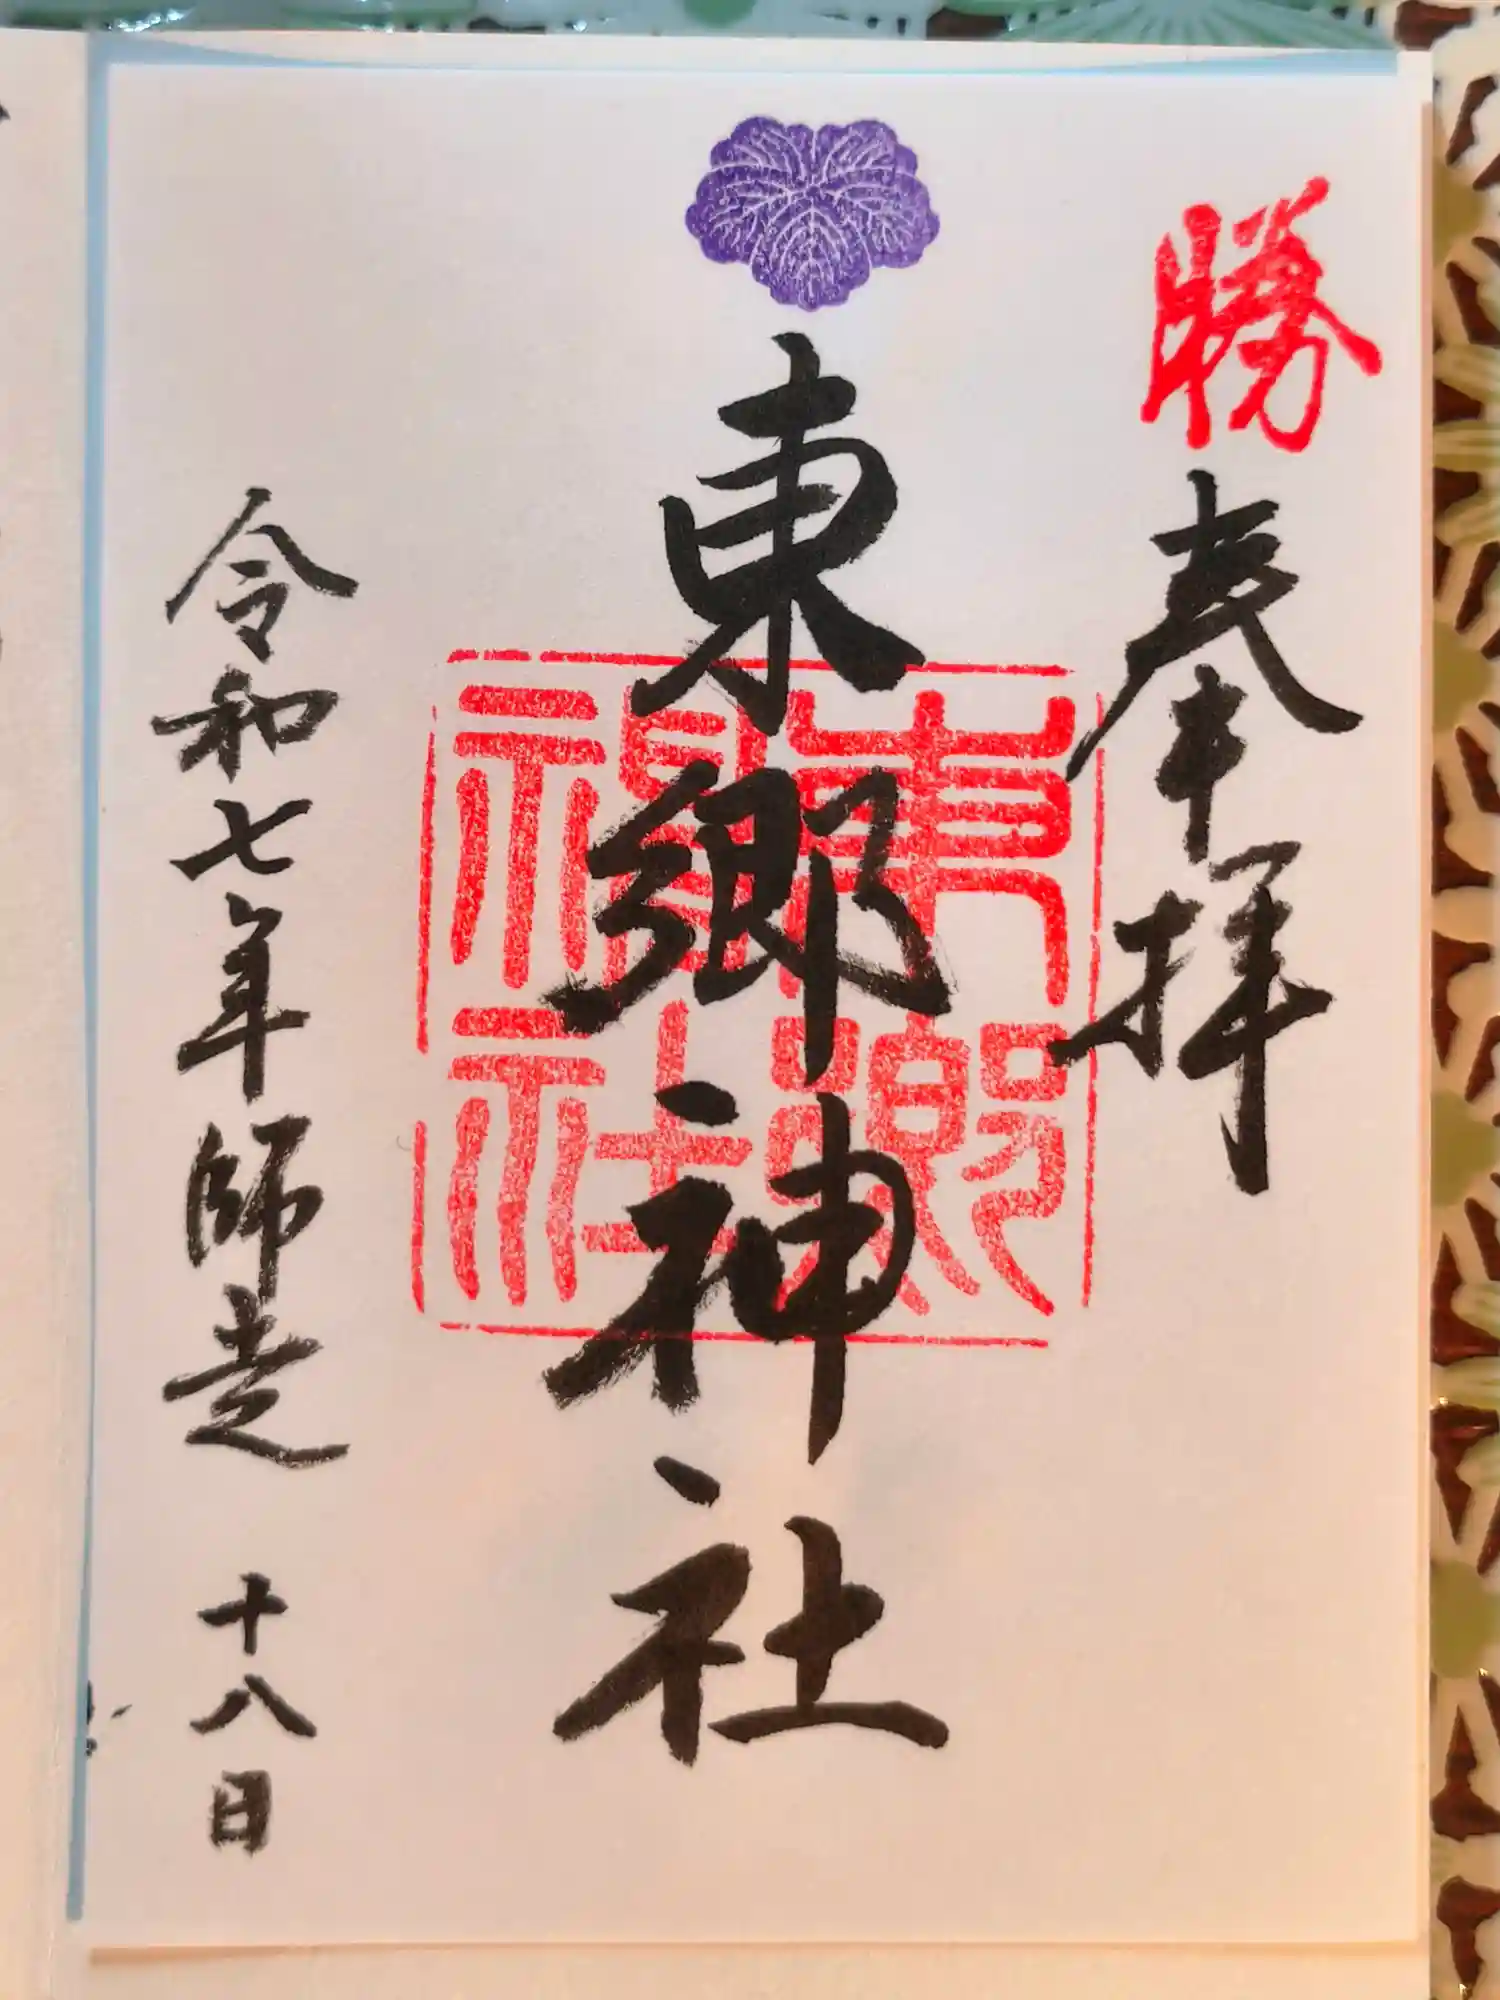 勝
奉拝
東郷神社
東郷
神社
令和七年師走 十八日